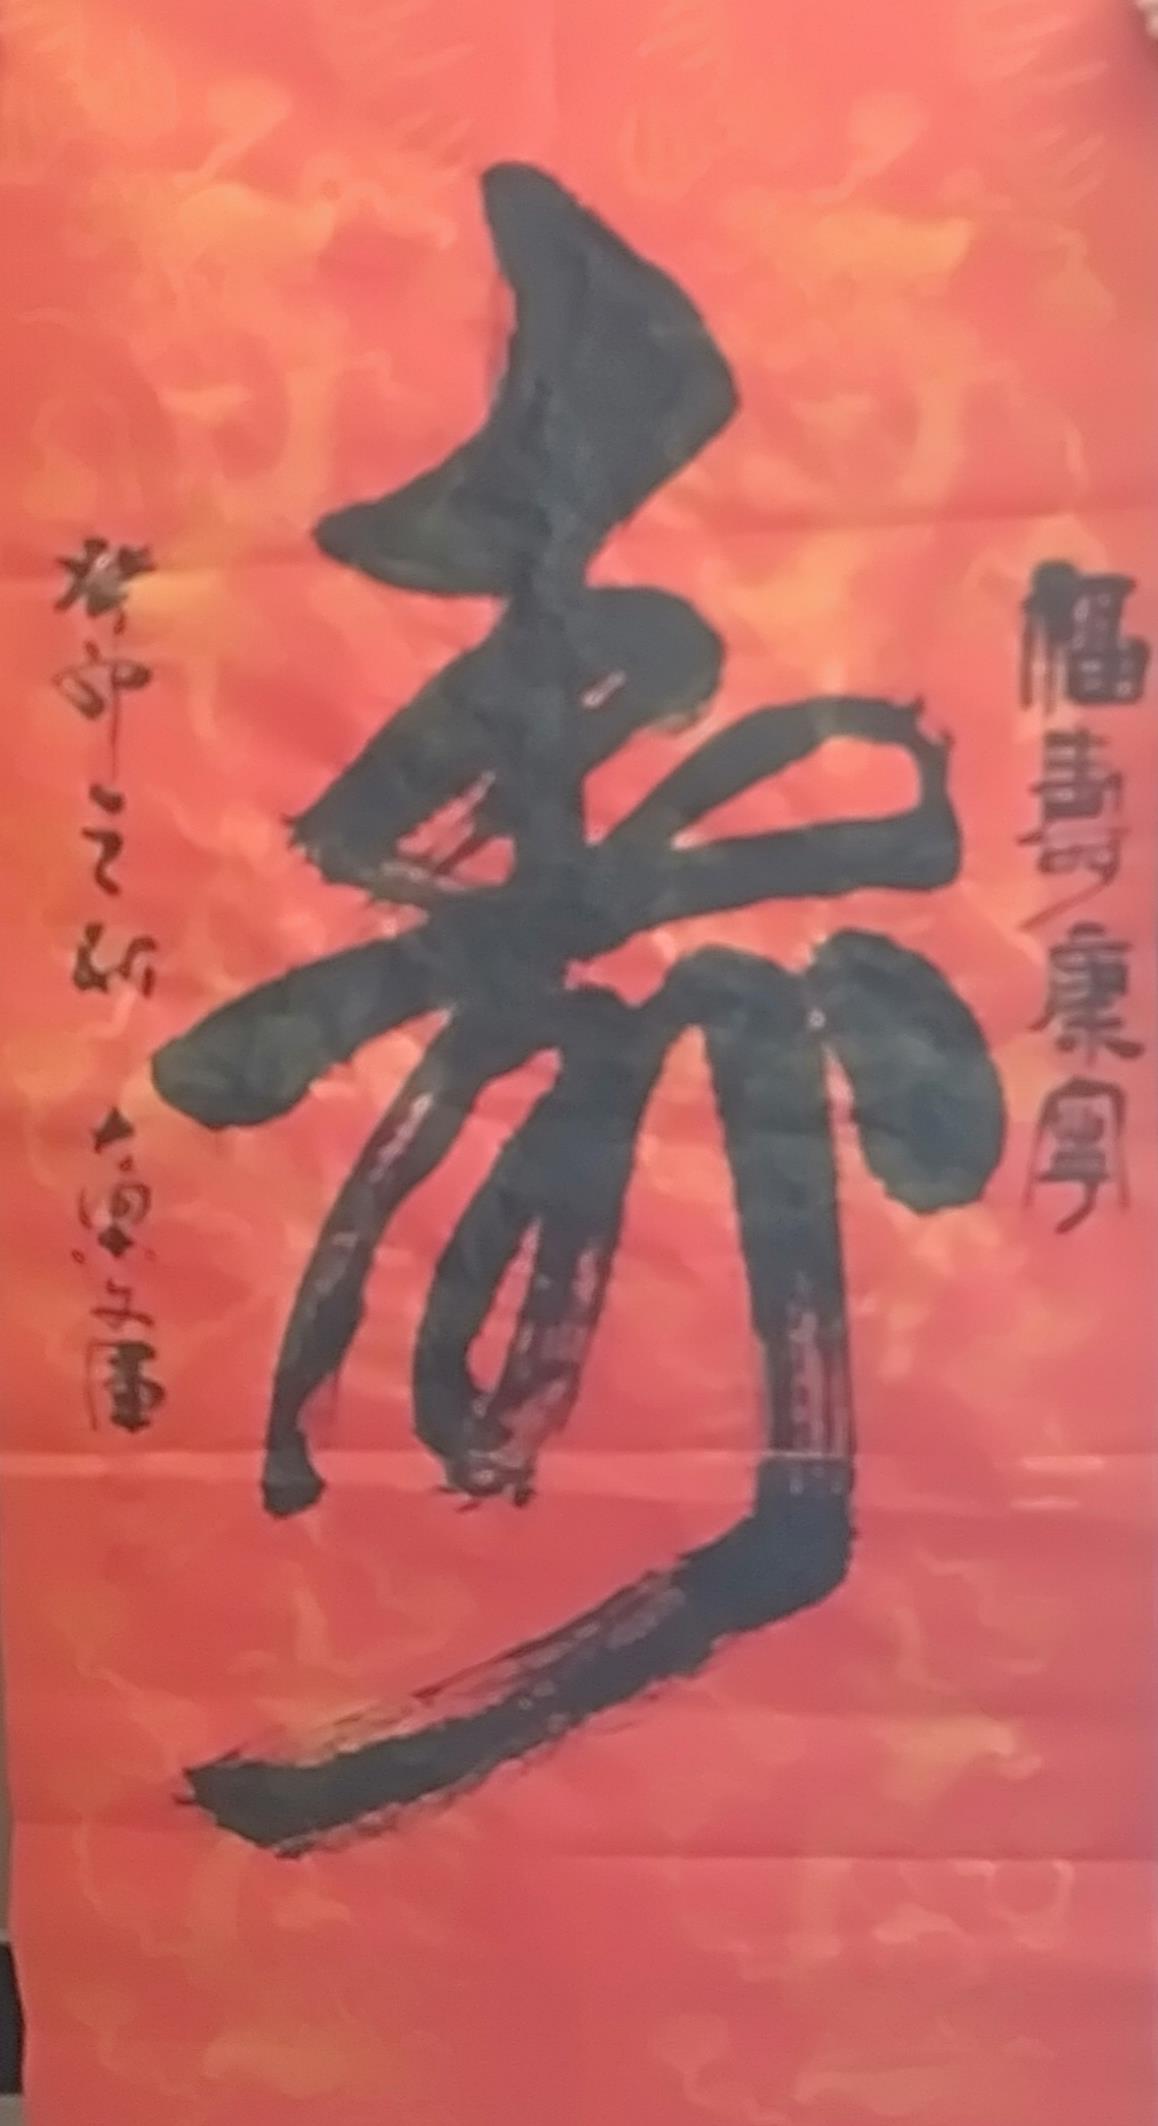 福壽康寧
壽
癸卯之新
文